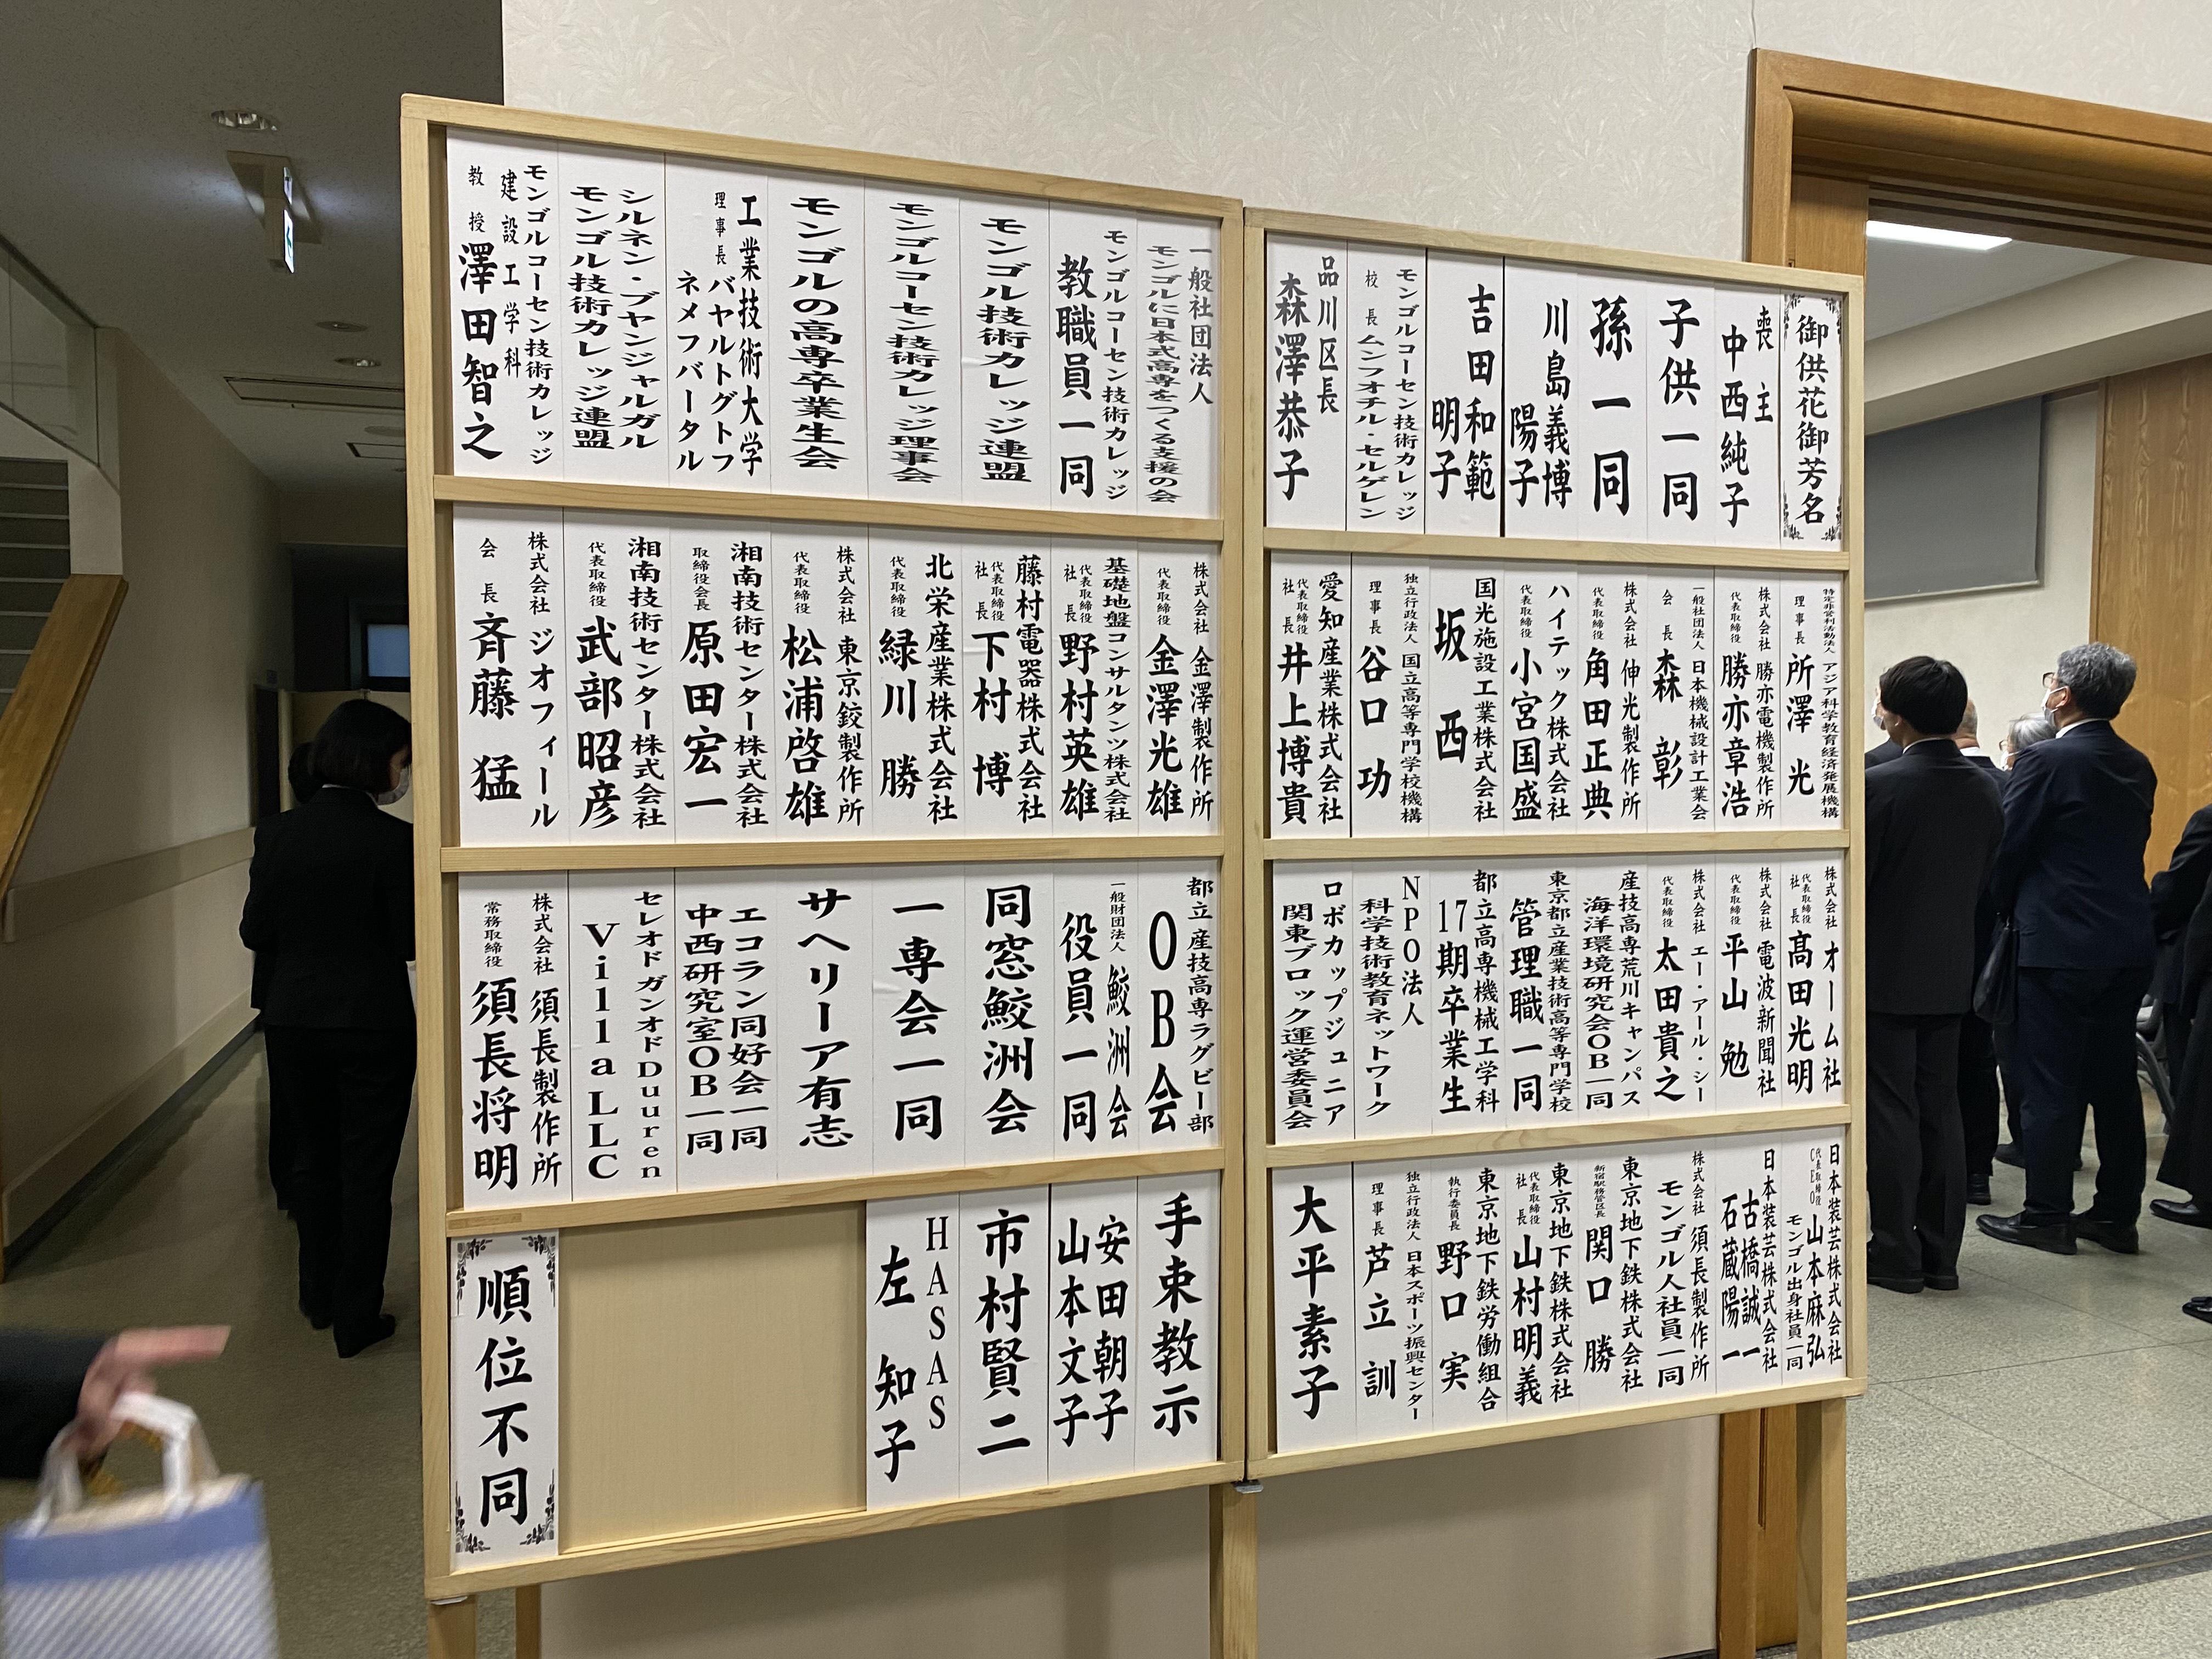 御供花御芳名
喪主
中西純子
子供一同
孫一同
川島義博
陽子
吉田和範
明子
モンゴルコーセン技術カレッジ
校長 ムンフオチル・セルゲレン
品川区長
森澤恭子
一般社団法人
モンゴルに日本式高専をつくる支援の会
モンゴルコーセン技術カレッジ
教職員一同
モンゴル技術カレッジ連盟
モンゴルコーセン技術カレッジ理事会
モンゴルの高専卒業生会
工業技術大学
理事長 バヤルトグトフ
ネメフバータル
シルネン・ブヤンジャルガル
モンゴル技術カレッジ連盟
モンゴルコーセン技術カレッジ
建設工学科
教授 澤田智之
特定非営利活動法人 アジア科学教育経済発展機構
理事長 所澤光
株式会社 勝亦電機製作所
代表取締役 勝亦章浩
一般社団法人 日本機械設計工業会
会長 森彰
株式会社 伸光製作所
代表取締役 角田正典
ハイテック株式会社
代表取締役 小宮国盛
国光施設工業株式会社
坂西
独立行政法人 国立高等専門学校機構
理事長 谷口功
愛知産業株式会社
代表取締役社長 井上博貴
株式会社 金澤製作所
代表取締役 金澤光雄
基礎地盤コンサルタンツ株式会社
代表取締役社長 野村英雄
藤村電器株式会社
代表取締役社長 下村博
北栄産業株式会社
代表取締役 緑川勝
株式会社 東京鉸製作所
代表取締役 松浦啓雄
湘南技術センター株式会社
取締役会長 原田宏一
湘南技術センター株式会社
代表取締役 武部昭彦
株式会社 ジオフィール
会長 斉藤猛
株式会社 オーム社
代表取締役社長 髙田光明
株式会社 電波新聞社
代表取締役 平山勉
株式会社 エー・アール・シー
代表取締役 太田貴之
産技高専荒川キャンパス
海洋環境研究会OB一同
東京都立産業技術高等専門学校
管理職一同
都立高専機械工学科
17期卒業生
NPO法人
科学技術教育ネットワーク
ロボカップジュニア
関東ブロック運営委員会
都立産技高専ラグビー部
OB会
一般財団法人 鮫洲会
役員一同
同窓鮫洲会
一専会一同
サヘリーア有志
エコラン同好会一同
中西研究室OB一同
セレオド ガンオド Duuren
Villa LLC
株式会社 須長製作所
常務取締役 須長将明
日本装芸株式会社
代表取締役CEO 山本麻弘
モンゴル出身社員一同
日本装芸株式会社
古橋誠一
石蔵陽一
株式会社 須長製作所
モンゴル人社員一同
東京地下鉄株式会社
新宿駅務管区長 関口勝
東京地下鉄株式会社
代表取締役社長 山村明義
東京地下鉄労働組合
執行委員長 野口実
独立行政法人 日本スポーツ振興センター
理事長 芦立訓
大平素子
手束教示
安田朝子
山本文子
市村賢二
HASAS
左知子
順位不同